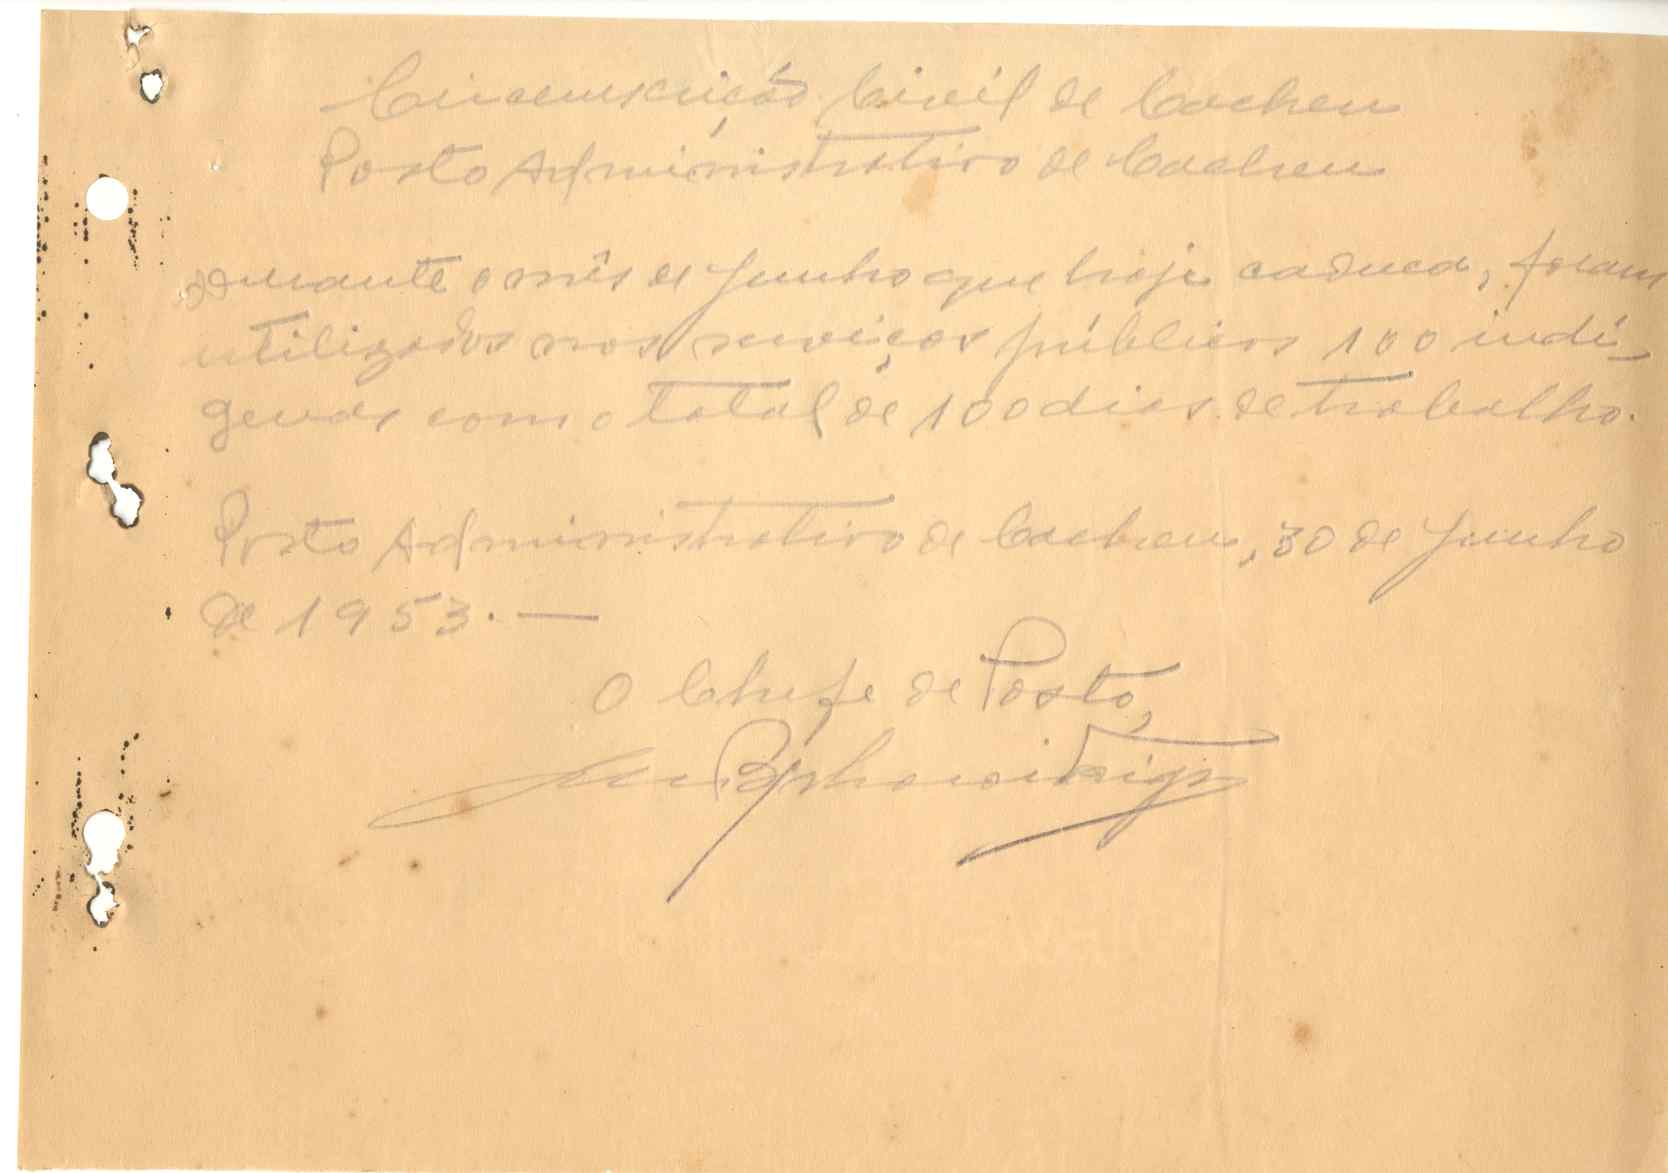 Circunscrição Civil de Cacheu
Posto Administrativo de Cacheu
Durante o mês de Junho que hoje caduca, foram
utilizados nos serviços públicos 100 indí-
genas com o total de 100 dias de trabalho.
Posto Administrativo de Cacheu, 30 de Junho
de 1953. —
O Chefe de Posto,